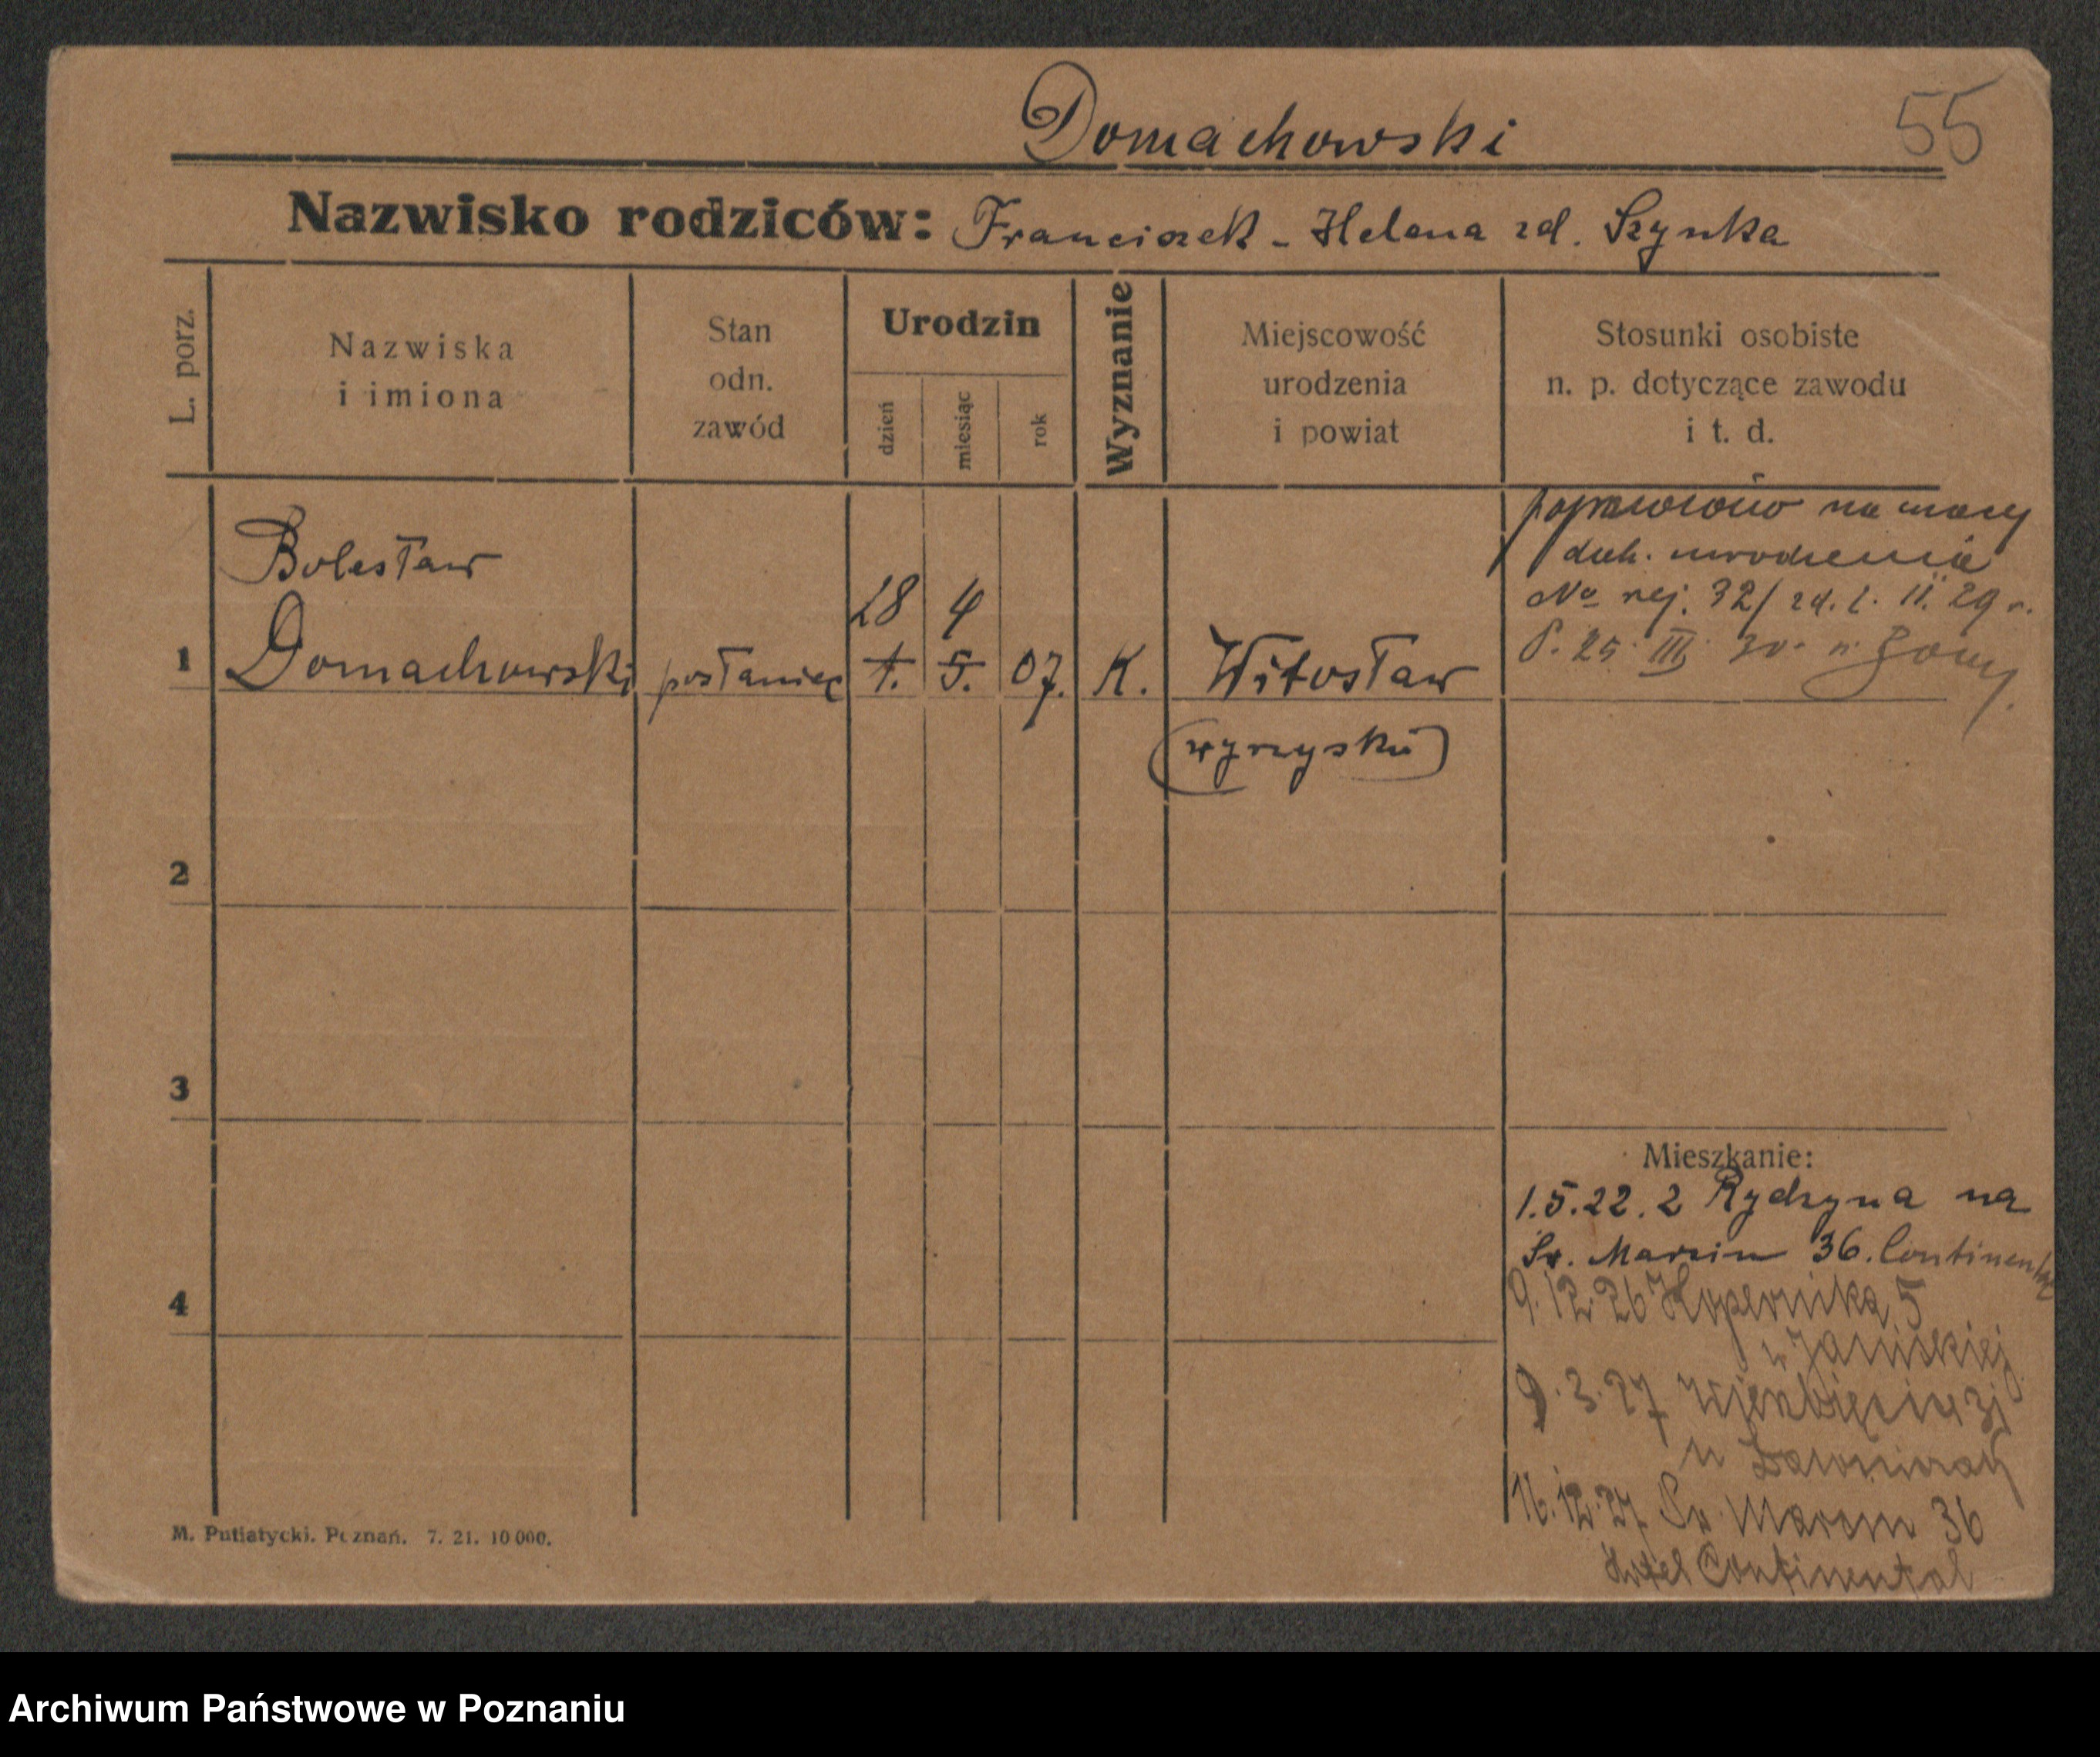 Domachowski
55
Nazwisko rodziców: Franciszek - Helena zd. Szynka
L. porz.
Nazwiska
i imiona
Stan
odn.
zawód
Urodzin
dzień
miesiąc
rok
Wyznanie
Miejscowość
urodzenia
i powiat
Stosunki osobiste
n. p. dotyczące zawodu
i t. d.
poprawiono na mocy
dok. urodzenia
No rej. 32/
29 r.
Bolesław
28 4
1 Domachowski posłaniec 1. 5. 07. K. Witosław
(wyrzyski)
2
3
4
Mieszkanie:
1.5.22. z Rydzyna na
Św. Marcin 36. Continental
9.12.26 Kopernika 5
u Janiskiej
9.3.27
u
16.12.27 Św. Marcin 36
Hotel Continental
M. Putiatycki. Poznań. 7. 21. 10 000.
Archiwum Państwowe w Poznaniu